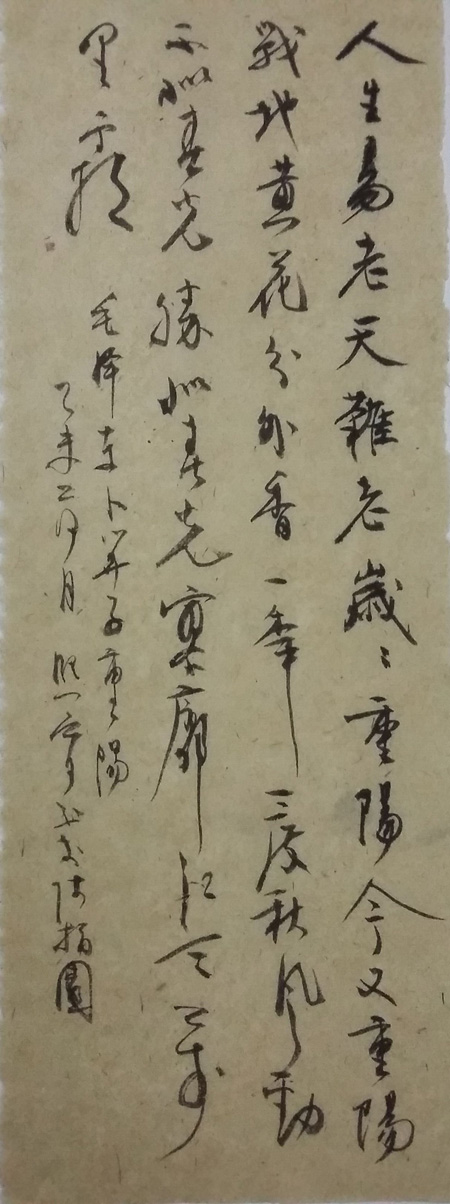 人生易老天難老歲〻重陽今又重陽
戰地黄花分外香一秊一度秋風勁
不似春光勝似春光寥廓江天萬
里霜
毛泽东卜算子重陽
乙未 月